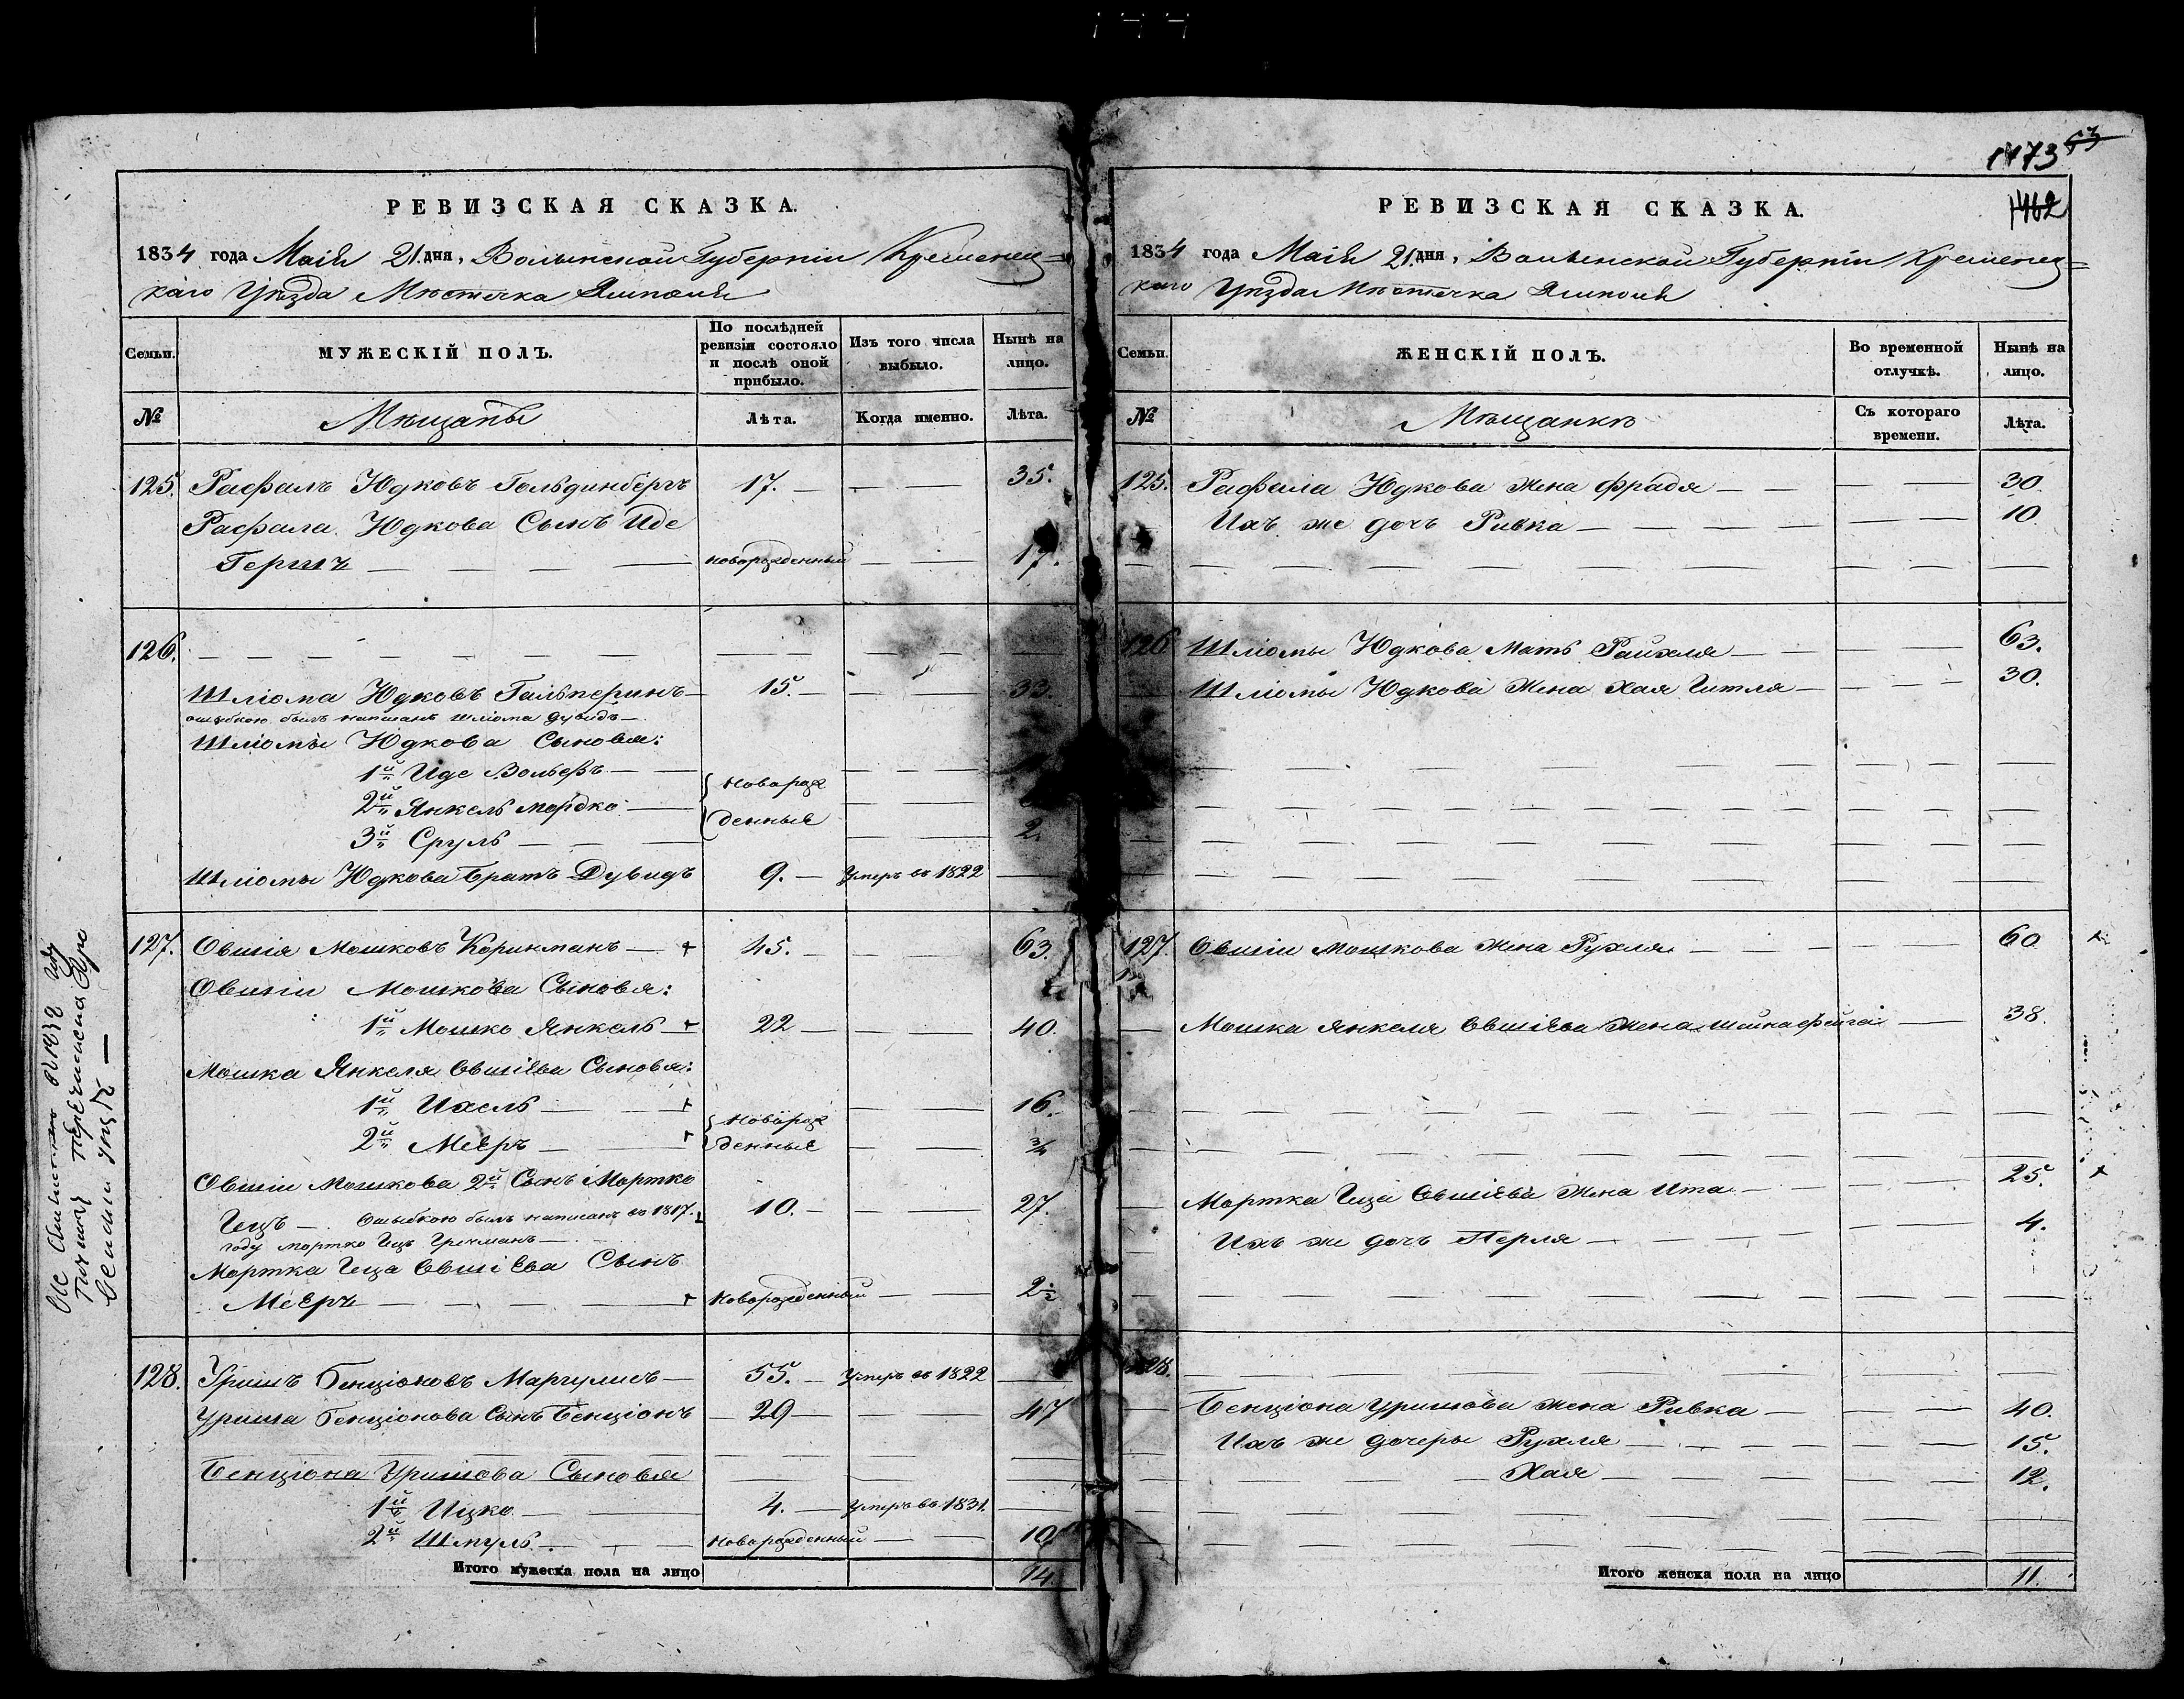 1473 53
1462
РЕВИЗСКАЯ СКАЗКА.
1834 года Маія 21 дня, Волынской Губерніи Кременец=
каго Уѣзда Мѣстечка Ямполя
Семьи.
МУЖЕСКІЙ ПОЛЪ.
По послѣдней
ревизіи состояло
и послѣ оной
прибыло.
Изъ того числа
выбыло.
Нынѣ на
лицо.
№
Мѣщаны
Лѣта.
Когда именно.
Лѣта.
125. Рафалъ Юдковъ Гольдинбергъ 17. — — — 35.
Рафала Юдкова Сынъ Иде
Гершъ — — — — новорожденный — — 17.
126. — — — — — — — —
Шліома Юдковъ Гальперинъ — 15. — — — 33.
ошибкою былъ написанъ Шліома Дувидъ —
Шліомы Юдкова Сыновья:
1й Иде Вольфъ — —
2й Янкель Мордко —
3й Сруль — — — 2.
Новорож
денные
Шліомы Юдкова братъ Дувидъ 9. — Умеръ въ 1822 —
127. Овшія Мошковъ Коринманъ — + 45. — — — 63.
Овшіи Мошкова Сыновья:
1й Мошко Янкель — + 22 — — — 40.
Мошка Янкеля Овшіева Сыновья:
1й Ихель — — + — — 16.
2й Мееръ — — + — — ¾
Новорож
денные
Овшіи Мошкова 2й Сынъ Мортко
Гецъ — Ошибкою былъ написанъ въ 1817. 10. — — — 27.
году Мортко Гецъ —
Мортка Геца Овшіева Сынъ
Мееръ — — — — + Новорожденный — — 2½
128. Уришъ Бенціоновъ Маргулисъ — 55. — Умеръ въ 1822 —
Уриша Бенціонова Сынъ Бенціонъ — 29 — — — 47
Бенціона Уришова Сыновья
1й Ицко — — 4. — Умеръ въ 1831. —
2й Шмуль — — — Новорожденный — — 10
Итого мужеска пола на лицо 14.
Переписена
РЕВИЗСКАЯ СКАЗКА.
1834 года Маія 21 дня, Волынской Губерніи Кременец=
каго Уѣзда Мѣстечка Ямполя
Семьи.
ЖЕНСКІЙ ПОЛЪ.
Во временной
отлучкѣ.
Нынѣ на
лицо.
№
Мѣщанкѣ
Съ котораго
времени.
Лѣта.
125. Рафаила Юдкова жена Фрадя — — — — 30.
Ихъ же дочь Ривка — — — — — 10.
126 Шліомы Юдкова Мать Райхля — — — — 63.
Шліомы Юдкова Жена Хая Гитля — — — 30.
127. Овшіи Мошкова Жена Рухля — — — — 60
Мошка Янкеля Овшіева Жена Шайна Фейга — — 38.
Мортка Геца Овшіева Жена Ита — — — 25.
Ихъ же дочь Перля — — — — — 4.
128. — — — — — — — —
Бенціона Уришова жена Ривка — — — 40.
Ихъ же дочеры Рухля — — — — — 15.
Хая — — — — — 12.
Итого женска пола на лицо 11.